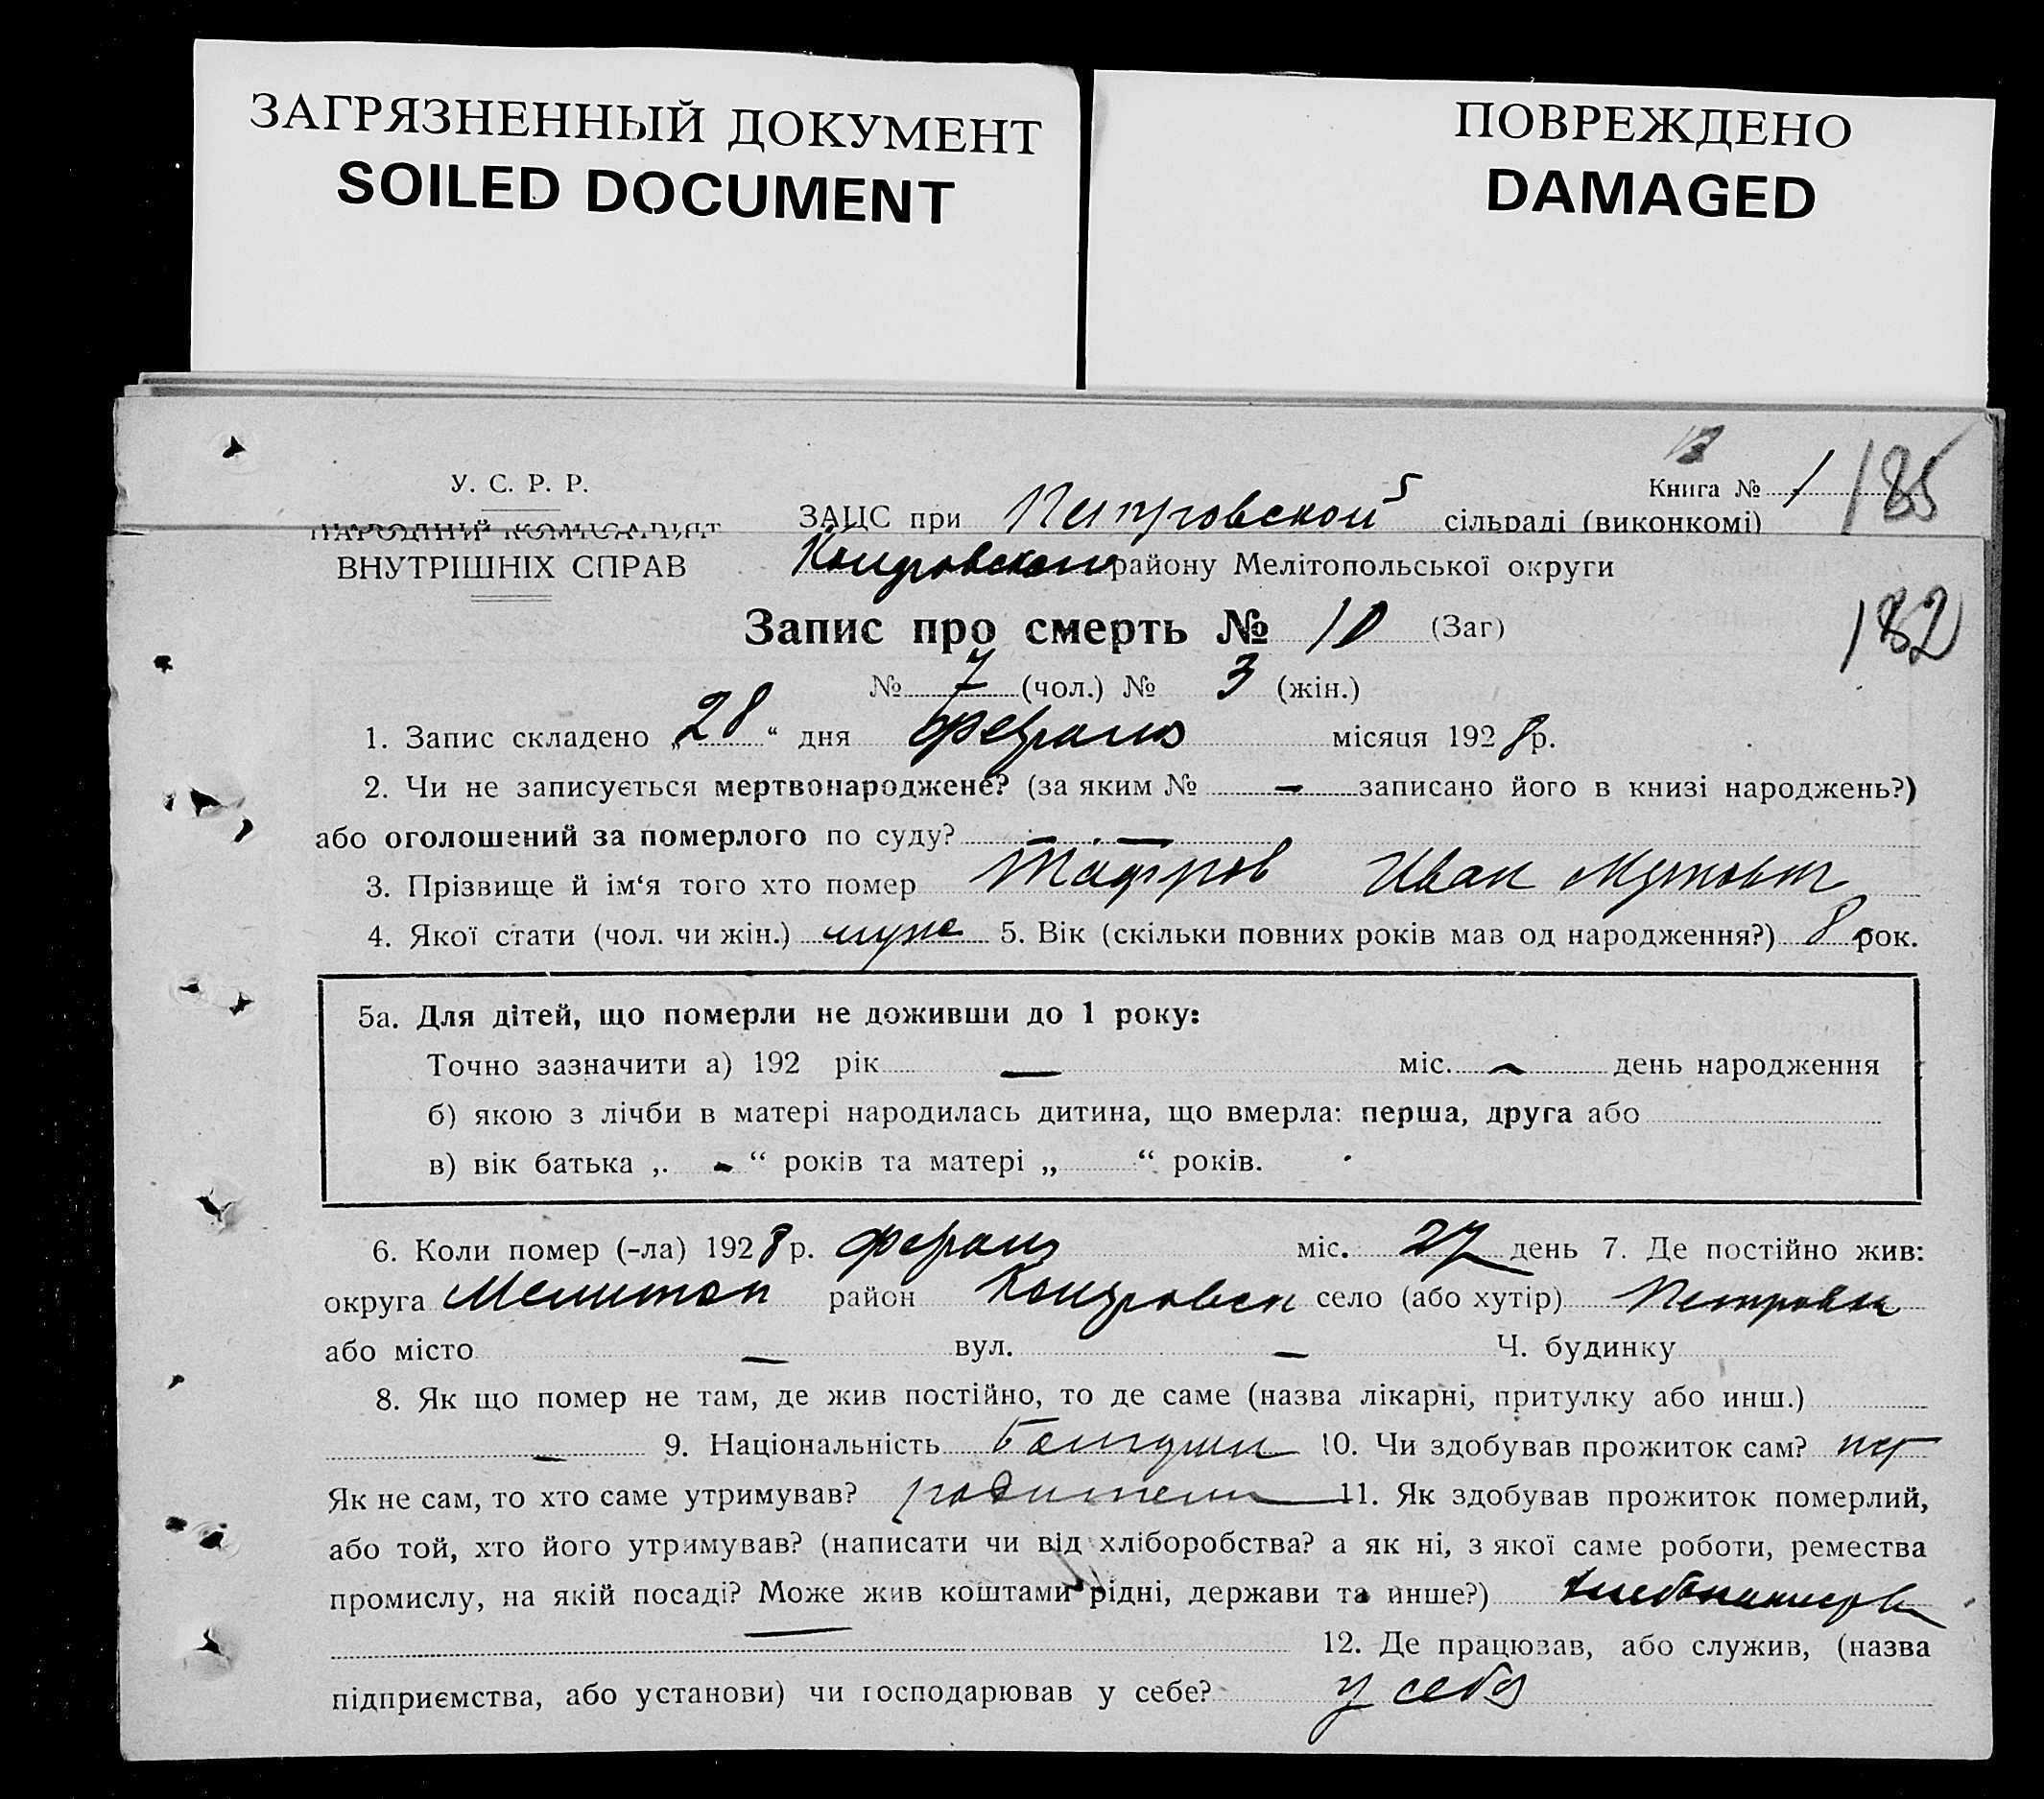 ЗАГРЯЗНЕННЫЙ ДОКУМЕНТ
SOILED DOCUMENT
ПОВРЕЖДЕНО
DAMAGED
У. С. Р. Р.
Книга № 1
185
ЗАЦС при Петровской сільраді (виконкомі)
НАРОДНІЙ КОМІСАРІЯТ
ВНУТРІШНІХ СПРАВ
району Мелітопольської округи
182
Запис про смерть № 10 (Заг)
№ 7 (чол.) № 3 (жін.)
1. Запис складено „28“ дня февраля місяця 1928 р.
2. Чи не записується мертвонароджене? (за яким № — записано його в книзі народжень?)
або оголошений за померлого по суду? —
3. Прізвище й ім‘я того хто помер Иван
4. Якої стати (чол. чи жін.) муж 5. Вік (скільки повних років мав од народження?) 8 рок.
5а. Для дітей, що померли не доживши до 1 року:
Точно зазначити а) 192 рік — міс. — день народження
б) якою з лічби в матері народилась дитина, що вмерла: перша, друга або
в) вік батька „ - “ років та матері „ “ років.
6. Коли помер (-ла) 1928 р. февраля міс. 27 день 7. Де постійно жив:
округа Мелитоп район село (або хутір) Петровка
або місто — вул. — Ч. будинку
8. Як що помер не там, де жив постійно, то де саме (назва лікарні, притулку або инш.)
— 9. Національність 10. Чи здобував прожиток сам? нет
Як не сам, то хто саме утримував? родители 11. Як здобував прожиток померлий,
або той, хто його утримував? (написати чи від хліборобства? а як ні, з якої саме роботи, ремества
промислу, на якій посаді? Може жив коштами рідні, держави та инше?)
— 12. Де працював, або служив, (назва
підприємства, або установи) чи господарював у себе? у себя